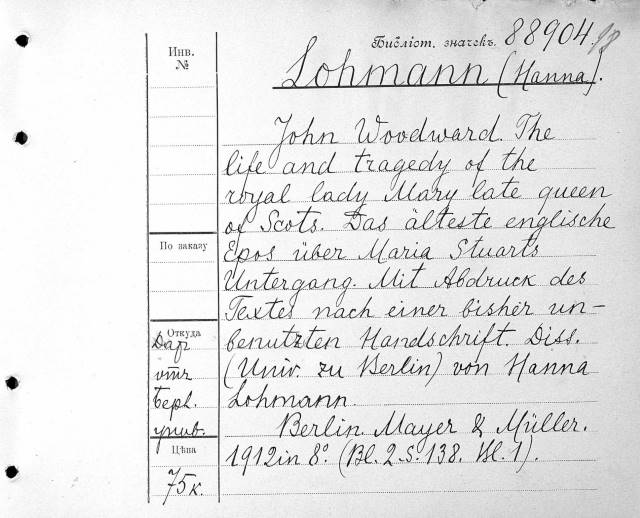 Библіот. значекъ. 88904
Инв.
№
Lohmann (Hanna).
John Woodward. The
life and tragedy of the
royal lady Mary late queen
of Scots. Das älteste englische
Epos über Maria Stuarts
Untergang. Mit Abdruck des
Textes nach einer bisher un-
benutzten Handschrift. Diss.
(Univ. zu Berlin) von Hanna
Lohmann.
Berlin. Mayer & Müller.
1912 in 8°. (Bl. 2. S. 138. Bl. 1).
По заказу
Откуда
Дар
отъ
Берл.
унив.
Цѣна
75 к.